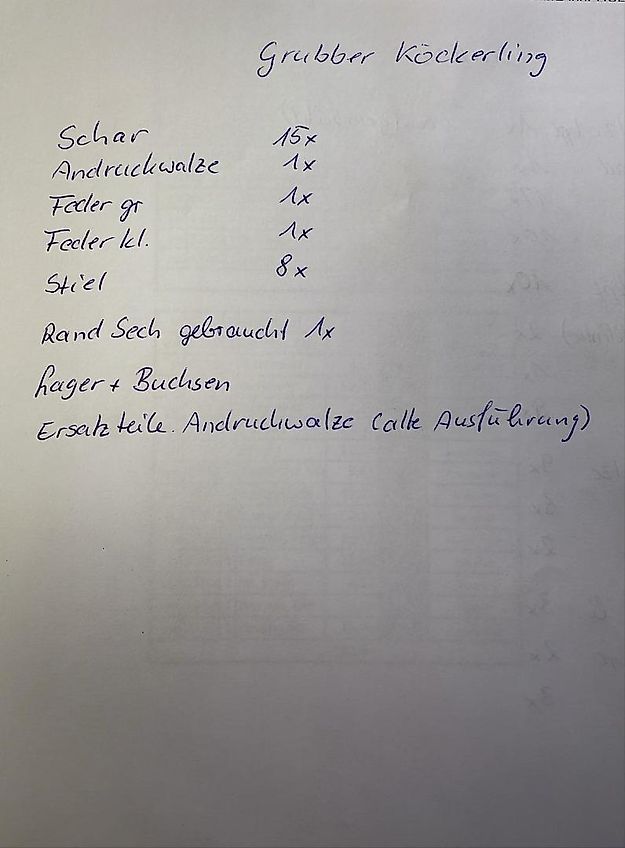 Grubber Köckerling
Schar 15x
Andruckwalze 1x
Feder gr 1x
Feder kl. 1x
Stiel 8x
Rand Sech gebraucht 1x
Lager + Buchsen
Ersatzteile. Andruckwalze (alte Ausführung)